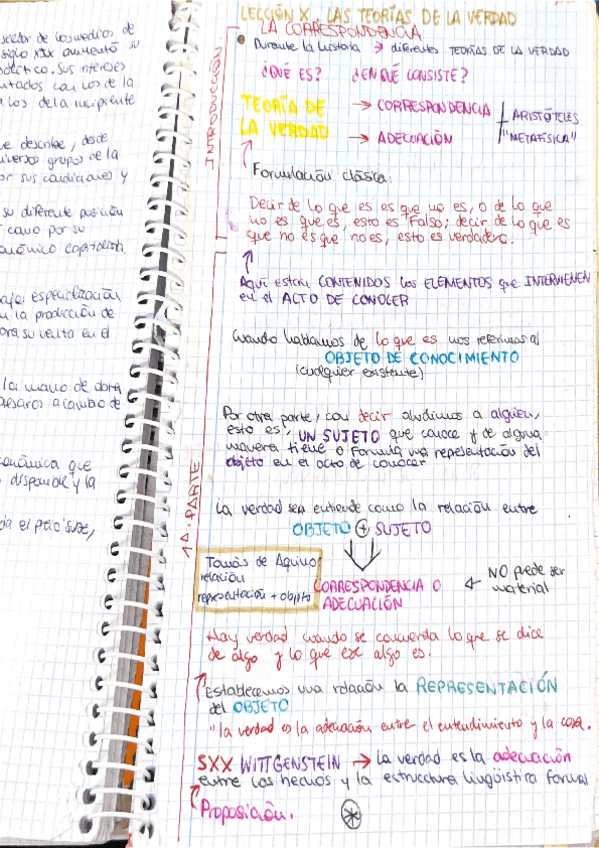 seedor de los medios de
siglo XIX aumentó su
político. Sus intereses
entados con los de la
a los de la incipiente
ue describe, desde
diversos grupos de la
por sus condiciones y
su diferente posición
cano por su
económico capitalista
baja especialización
en la producción de
para su venta en el
la mano de obra
presarios a cambio de
económica que
disponible y la
da el precio sube,
LECCIÓN X LAS TEORÍAS DE LA VERDAD
LA CORRESPONDENCIA
INTRODUCCIÓN
Durante la historia → diferentes TEORÍAS DE LA VERDAD
¿QUÉ ES? ¿EN QUÉ CONSISTE?
TEORÍA DE LA VERDAD
→ CORRESPONDENCIA
→ ADECUACIÓN
ARISTÓTELES
"METAFÍSICA"
Formulación clásica:
Decir de lo que es que no es, o de lo que
no es que es, esto es Falso; decir de lo que es
que no es que no es, esto es verdadero.
Aquí están CONTENIDOS los ELEMENTOS que INTERVIENEN
en el ACTO DE CONOCER
Cuando hablamos de lo que es nos referimos al
OBJETO DE CONOCIMIENTO
(cualquier existente)
1ª PARTE
Por otra parte, con decir aludimos a alguien,
esto es, UN SUJETO que conoce y de alguna
manera tiene o formula una representación del
objeto en el acto de conocer
La verdad se entiende como la relación entre
OBJETO + SUJETO
Tomás de Aquino:
relación
representación + objeto
CORRESPONDENCIA O
ADECUACIÓN
← NO puede ser
material
Hay verdad cuando se concuerda lo que se dice
de algo y lo que ese algo es.
Establecemos una relación la REPRESENTACIÓN
del OBJETO
"la verdad es la adecuación entre el entendimiento y la cosa.
SXX WITTGENSTEIN → La verdad es la adecuación
entre los hechos y la estructura lingüística formal
Proposición.
*